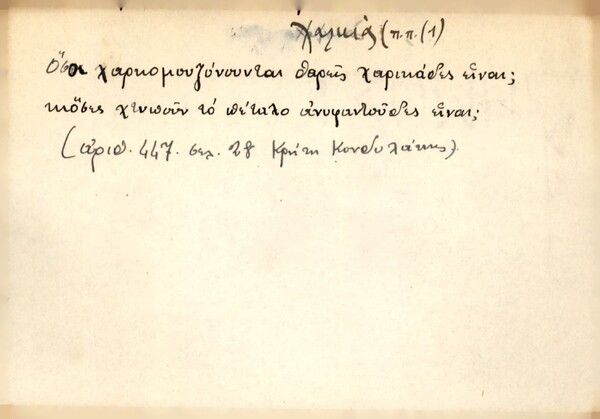 Χαλκιάς (π.π. (1)
Ὅσοι χαρκομουζόνουνται θαρεῖς χαρκιάδες εἶναι;
κιὅσες χτυποῦν τό πέταλο ἀνυφαντοῦδες εἶναι;
(ἀριθ. 447. σελ. 28 Κρήτη Κονδυλάκης).